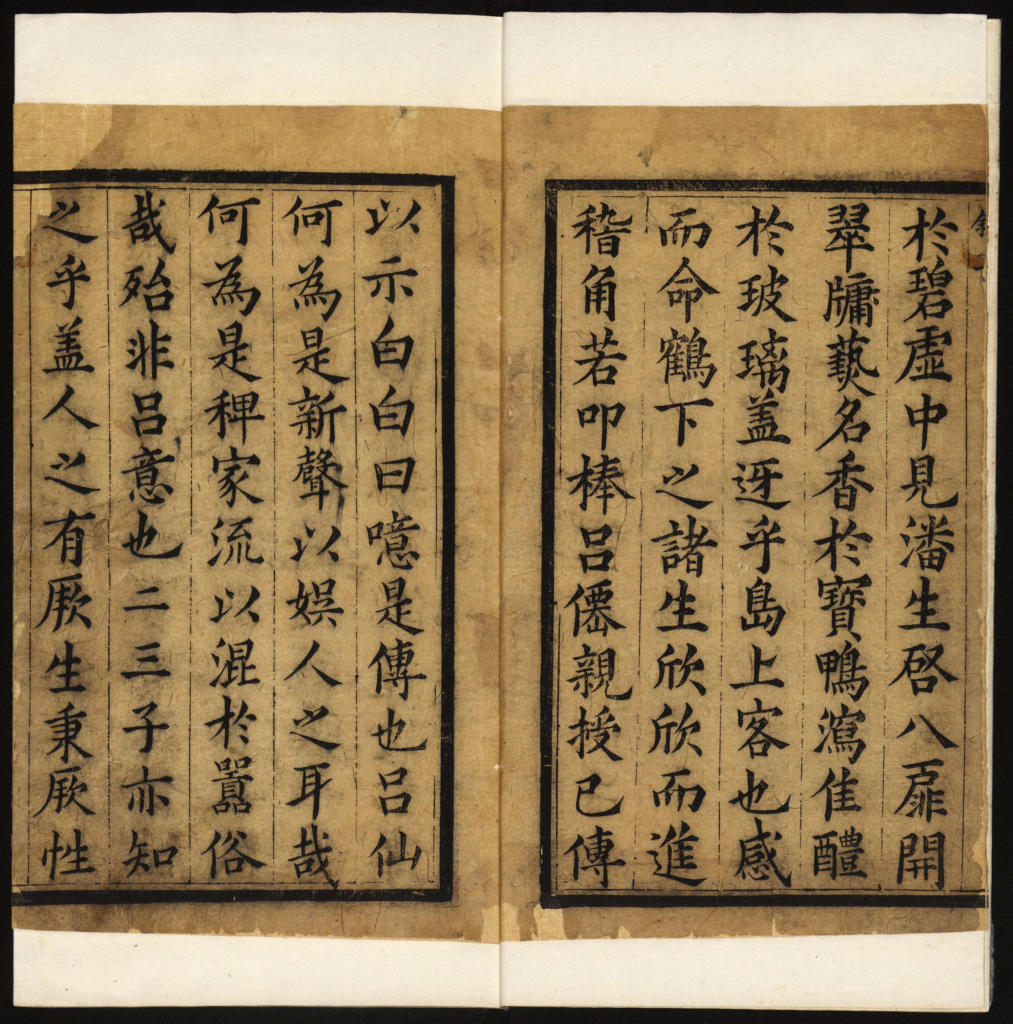 於碧虛中見潘生啓八扉開
翠牗爇名香於寶鴨瀉佳醴
於玻瓈盖迓乎島上客也感
而命鶴下之諸生欣欣而進
稽角若叩棒呂僊親授已傳
以示白白曰噫是傳也呂仙
何為是新聲以娛人之耳哉
何為是稗家流以混於囂俗
哉殆非呂意也二三子亦知
之乎盖人之有厥生秉厥性